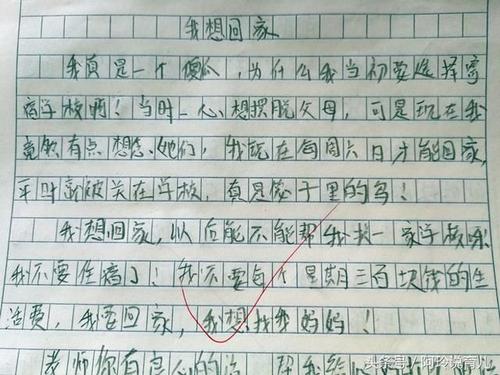 我想回家
我真是一个傻瓜，为什么我当初要选择寄
宿学校啊！当时一心想摆脱父母，可是现在我
竟然有点想念她们，我现在每周六日才能回家，
平时就被关在学校，真是笼子里的鸟！
我想回家，以后能不能帮我找一家学校
我不要住宿了！我不要每个星期三百块钱的生
活费，我要回家，我想找我妈妈！
老师你有良心的话，帮我给
头条号/阿玲悦育儿